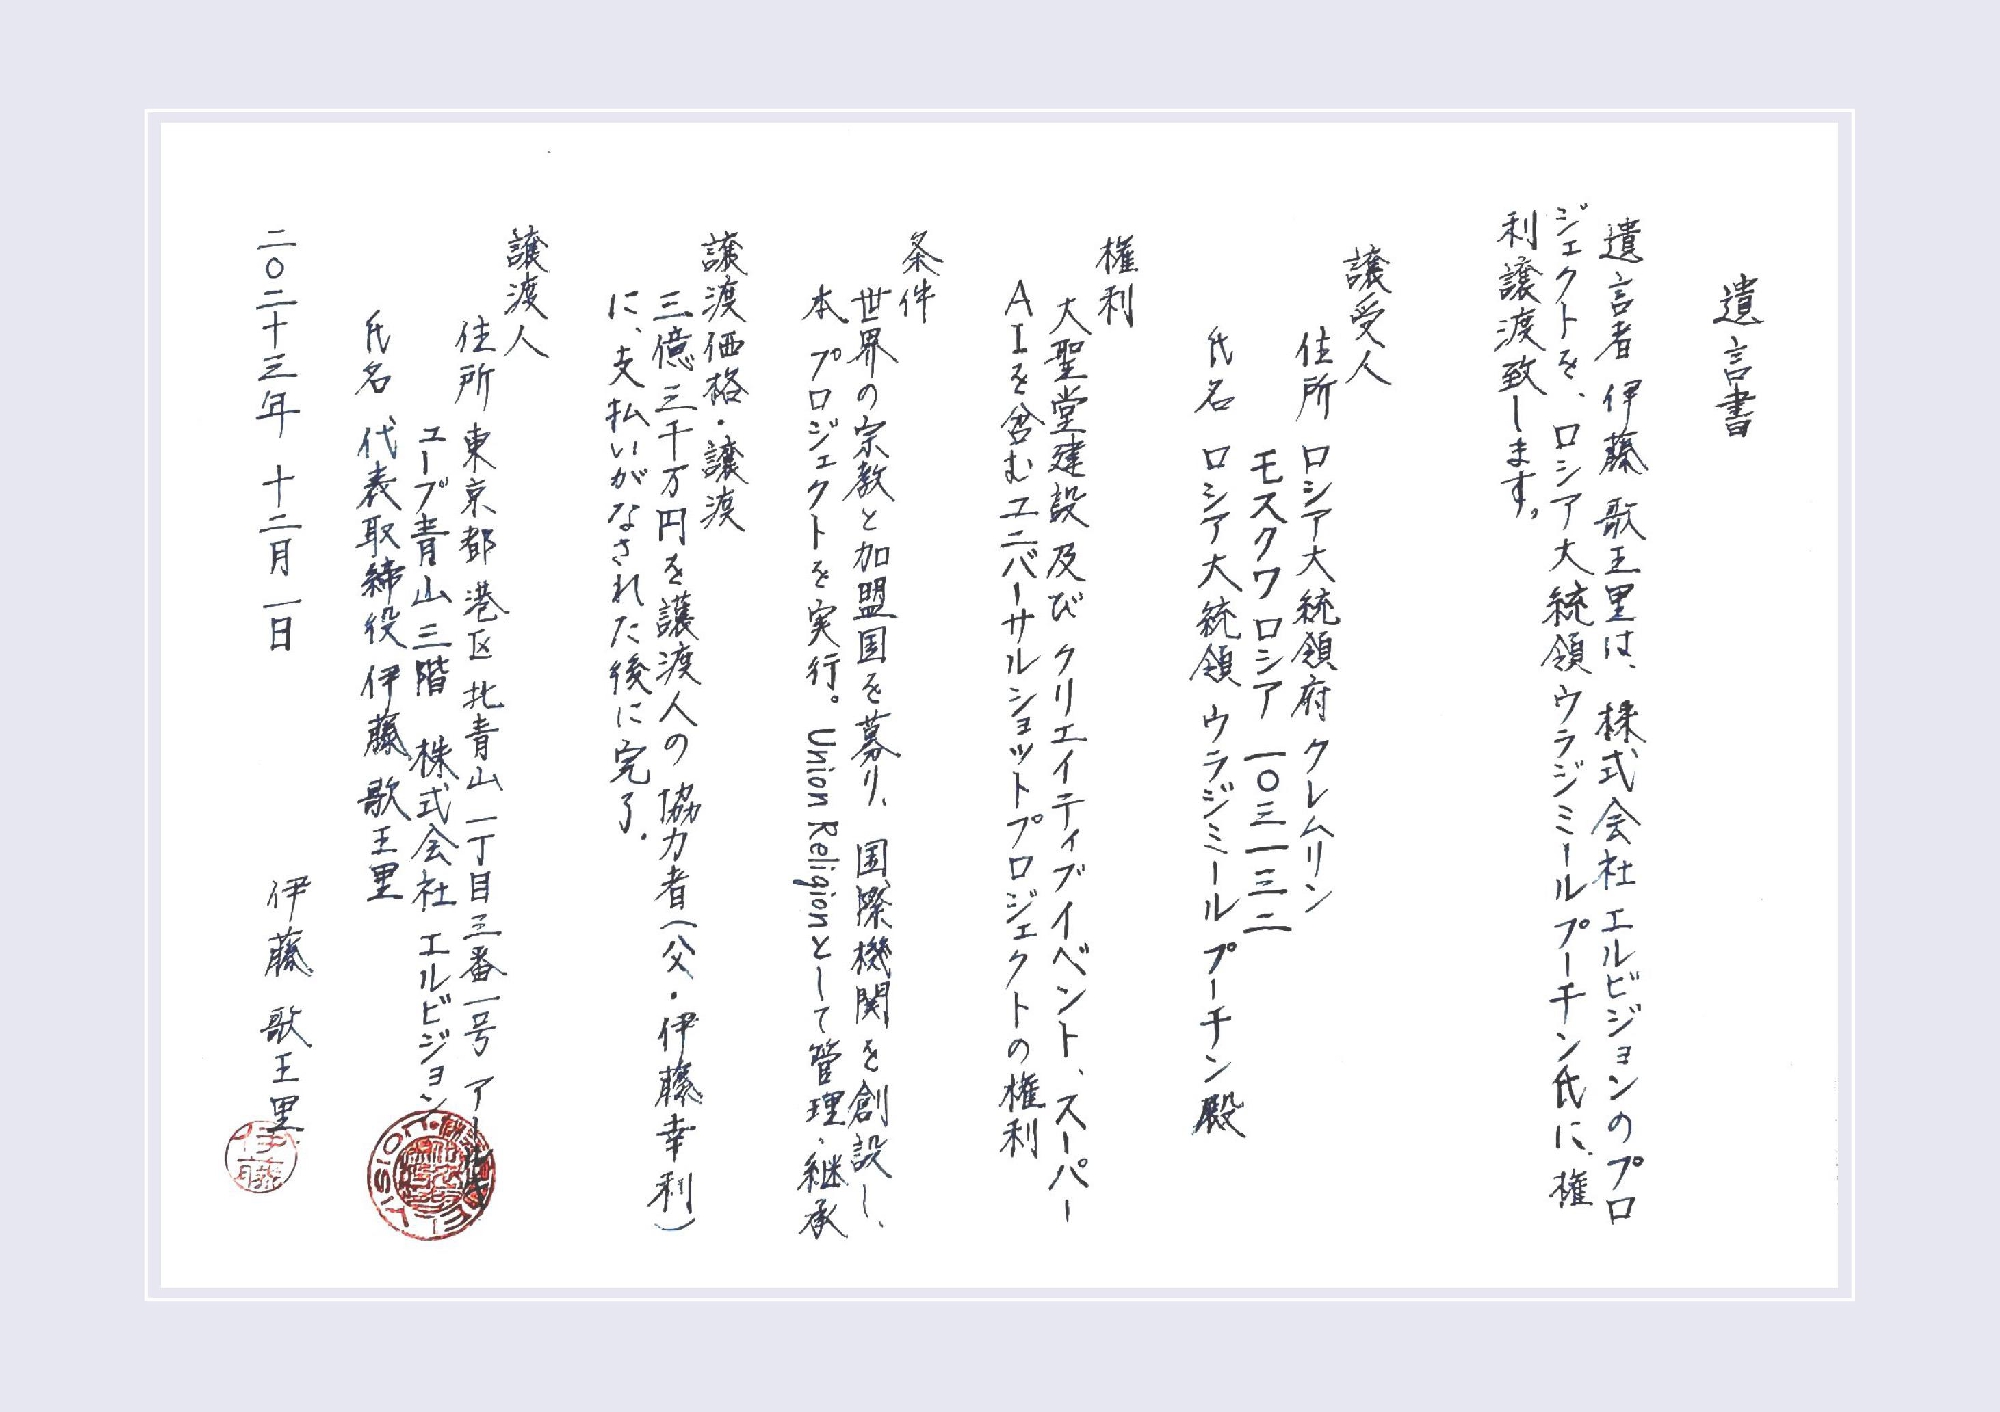 遺言書
遺言者 伊藤 歌王里は、株式会社 エルビジョンのプロ
ジェクトを、ロシア大統領 ウラジミール プーチン氏に、権
利譲渡致します。
譲受人
住所 ロシア大統領府 クレムリン
モスクワ ロシア 一〇三一三二
氏名 ロシア大統領 ウラジミール プーチン殿
権利
大聖堂建設 及び クリエイティブイベント、スーパー
AIを含むユニバーサルショットプロジェクトの権利
条件
世界の宗教と加盟国を募り、国際機関を創設し、
本プロジェクトを実行。Union Religionとして管理、継承
譲渡価格・譲渡
三億三千万円を譲渡人の協力者(父・伊藤幸利)
に、支払いがなされた後に完了.
譲渡人
住所 東京都 港区 北青山 一丁目三番一号 アー
ユーブ青山三階 株式会社 エルビジョン
氏名 代表取締役 伊藤 歌王里
二〇二十三年 十二月 一日 伊藤 歌王里
伊藤